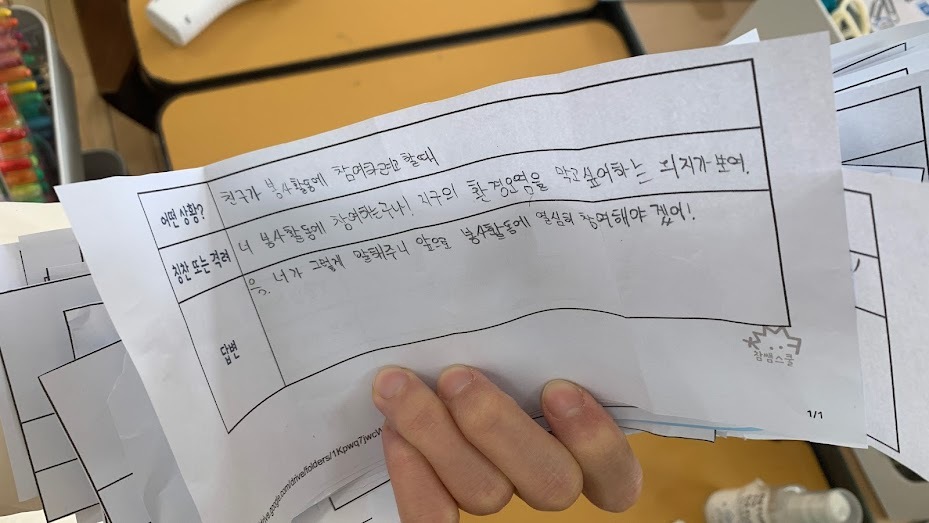 어떤 상황? 친구가 봉사활동에 참여하려고 할때
칭찬 또는 격려 너 봉사활동에 참여하는구나! 지구의 환경오염을 막고 싶어하는 의지가 보여.
답변 응, 너가 그렇게 말해주니 앞으로 봉사활동에 열심히 참여해야 겠어!
참쌤스쿨
1/1
drive.google.com/drive/folders/1Kpwq7jwcW